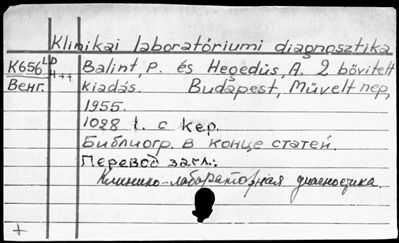 Klinikai laboratóriumi diagnosztika
K656 LD Balint, P. és Hegedüs, A. 2 bövitett
Венг. kiadás. Budapest, Müvelt nep,
1955.
1028 l. с кер.
Библиогр. в конце статей.
Перевод загл.:
Клинико-лабораторная диагностика.